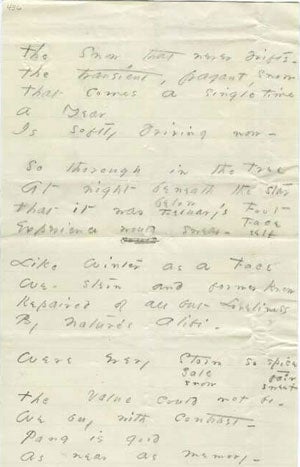 The Snow that never drifts -
The transient, fragrant snow
That comes a single time
a Year
Is softly driving now -
So thorough in the Tree
At night beneath the star
below
That it was February's Foot
Face
Experience would swear - self
Like Winter as a Face
We stern and former knew
Repaired of all but Loneliness
By Nature's Alibi -
Were every storm so spice
Gale fair
snow sweet
The Value could not be -
We buy with contrast -
Pang is good
As near as memory -